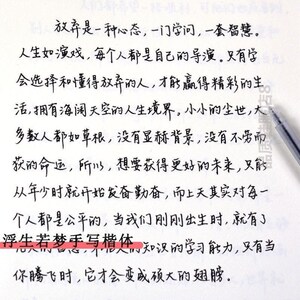 放弃是一种心态，一门学问，一套智慧。
人生如演戏，每个人都是自己的导演。只有学
会选择和懂得放弃的人，才能赢得精彩的生
活，拥有海阔天空的人生境界。小小的尘世，大
多数人都如草根，没有显赫背景，没有不劳而
获的命运，所以，想要获得更好的未来，只能
从年少时就开始发奋勤奋，而上天其实对每一
个人都是公平的，当我们刚刚出生时，就有了
浮生若梦手写楷体
的知识的学习能力，只有当
你腾飞时，它才会变成硕大的翅膀。